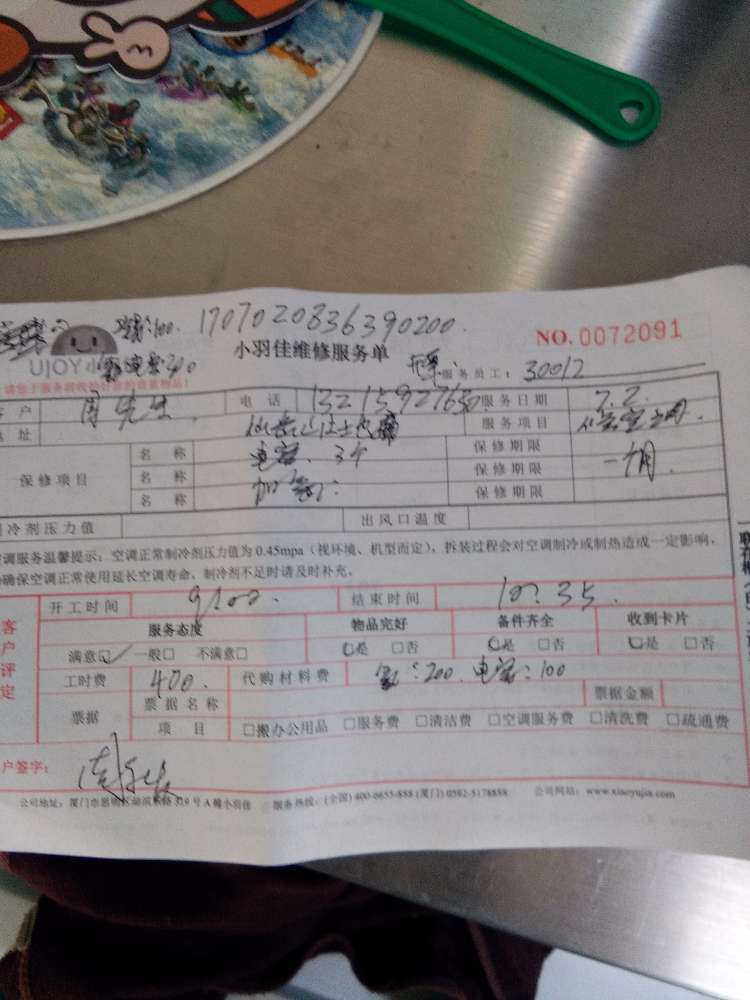 :100. 1707020836390200.
NO.0072091
UJOY小
小羽佳维修服务单
服务员工： 30012
户 周先生 电 话 服务日期 7.2.
址 服务项目
保修项目 名 称 3个 保修期限
名 称 加 保修期限 一个月.
名 称 保修期限
冷剂压力值 出风口温度
调服务温馨提示：空调正常制冷剂压力值为 0.45mpa（视环境、机型而定），拆装过程会对空调制冷或制热造成一定影响，
确保空调正常使用延长空调寿命，制冷剂不足时请及时补充。
开工时间 9:00. 结束时间 10:35
客户评定
服务态度 物品完好 备件齐全 收到卡片
满意☑ 一般□ 不满意□ □是 □否 □是 □否 □是 □否
工时费 400. 代购材料费 :200. :100
票据 票据名称 票据金额
项 目 □搬办公用品 □服务费 □清洁费 □空调服务费 □清洗费 □疏通费
户签字：
公司地址：厦门市思明区 319 号 A 幢小羽佳 服务热线：(全国) 400-6655-888 (厦门) 0592-5178888 公司网站：www.xiaoyujia.com